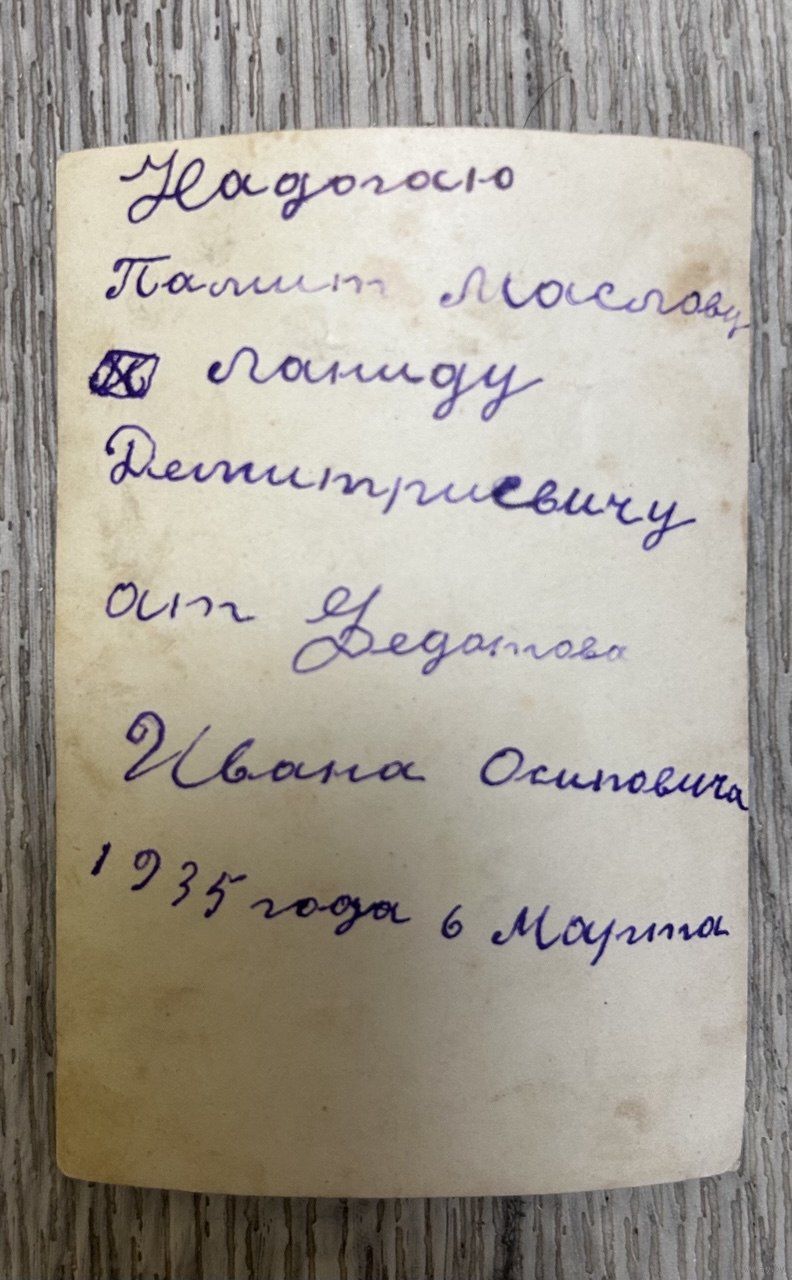 Надогаю
Памит Маслову
Ланиду
Демитриевичу
от Федотова
Ивана Осиповича
1935 года 6 Марта